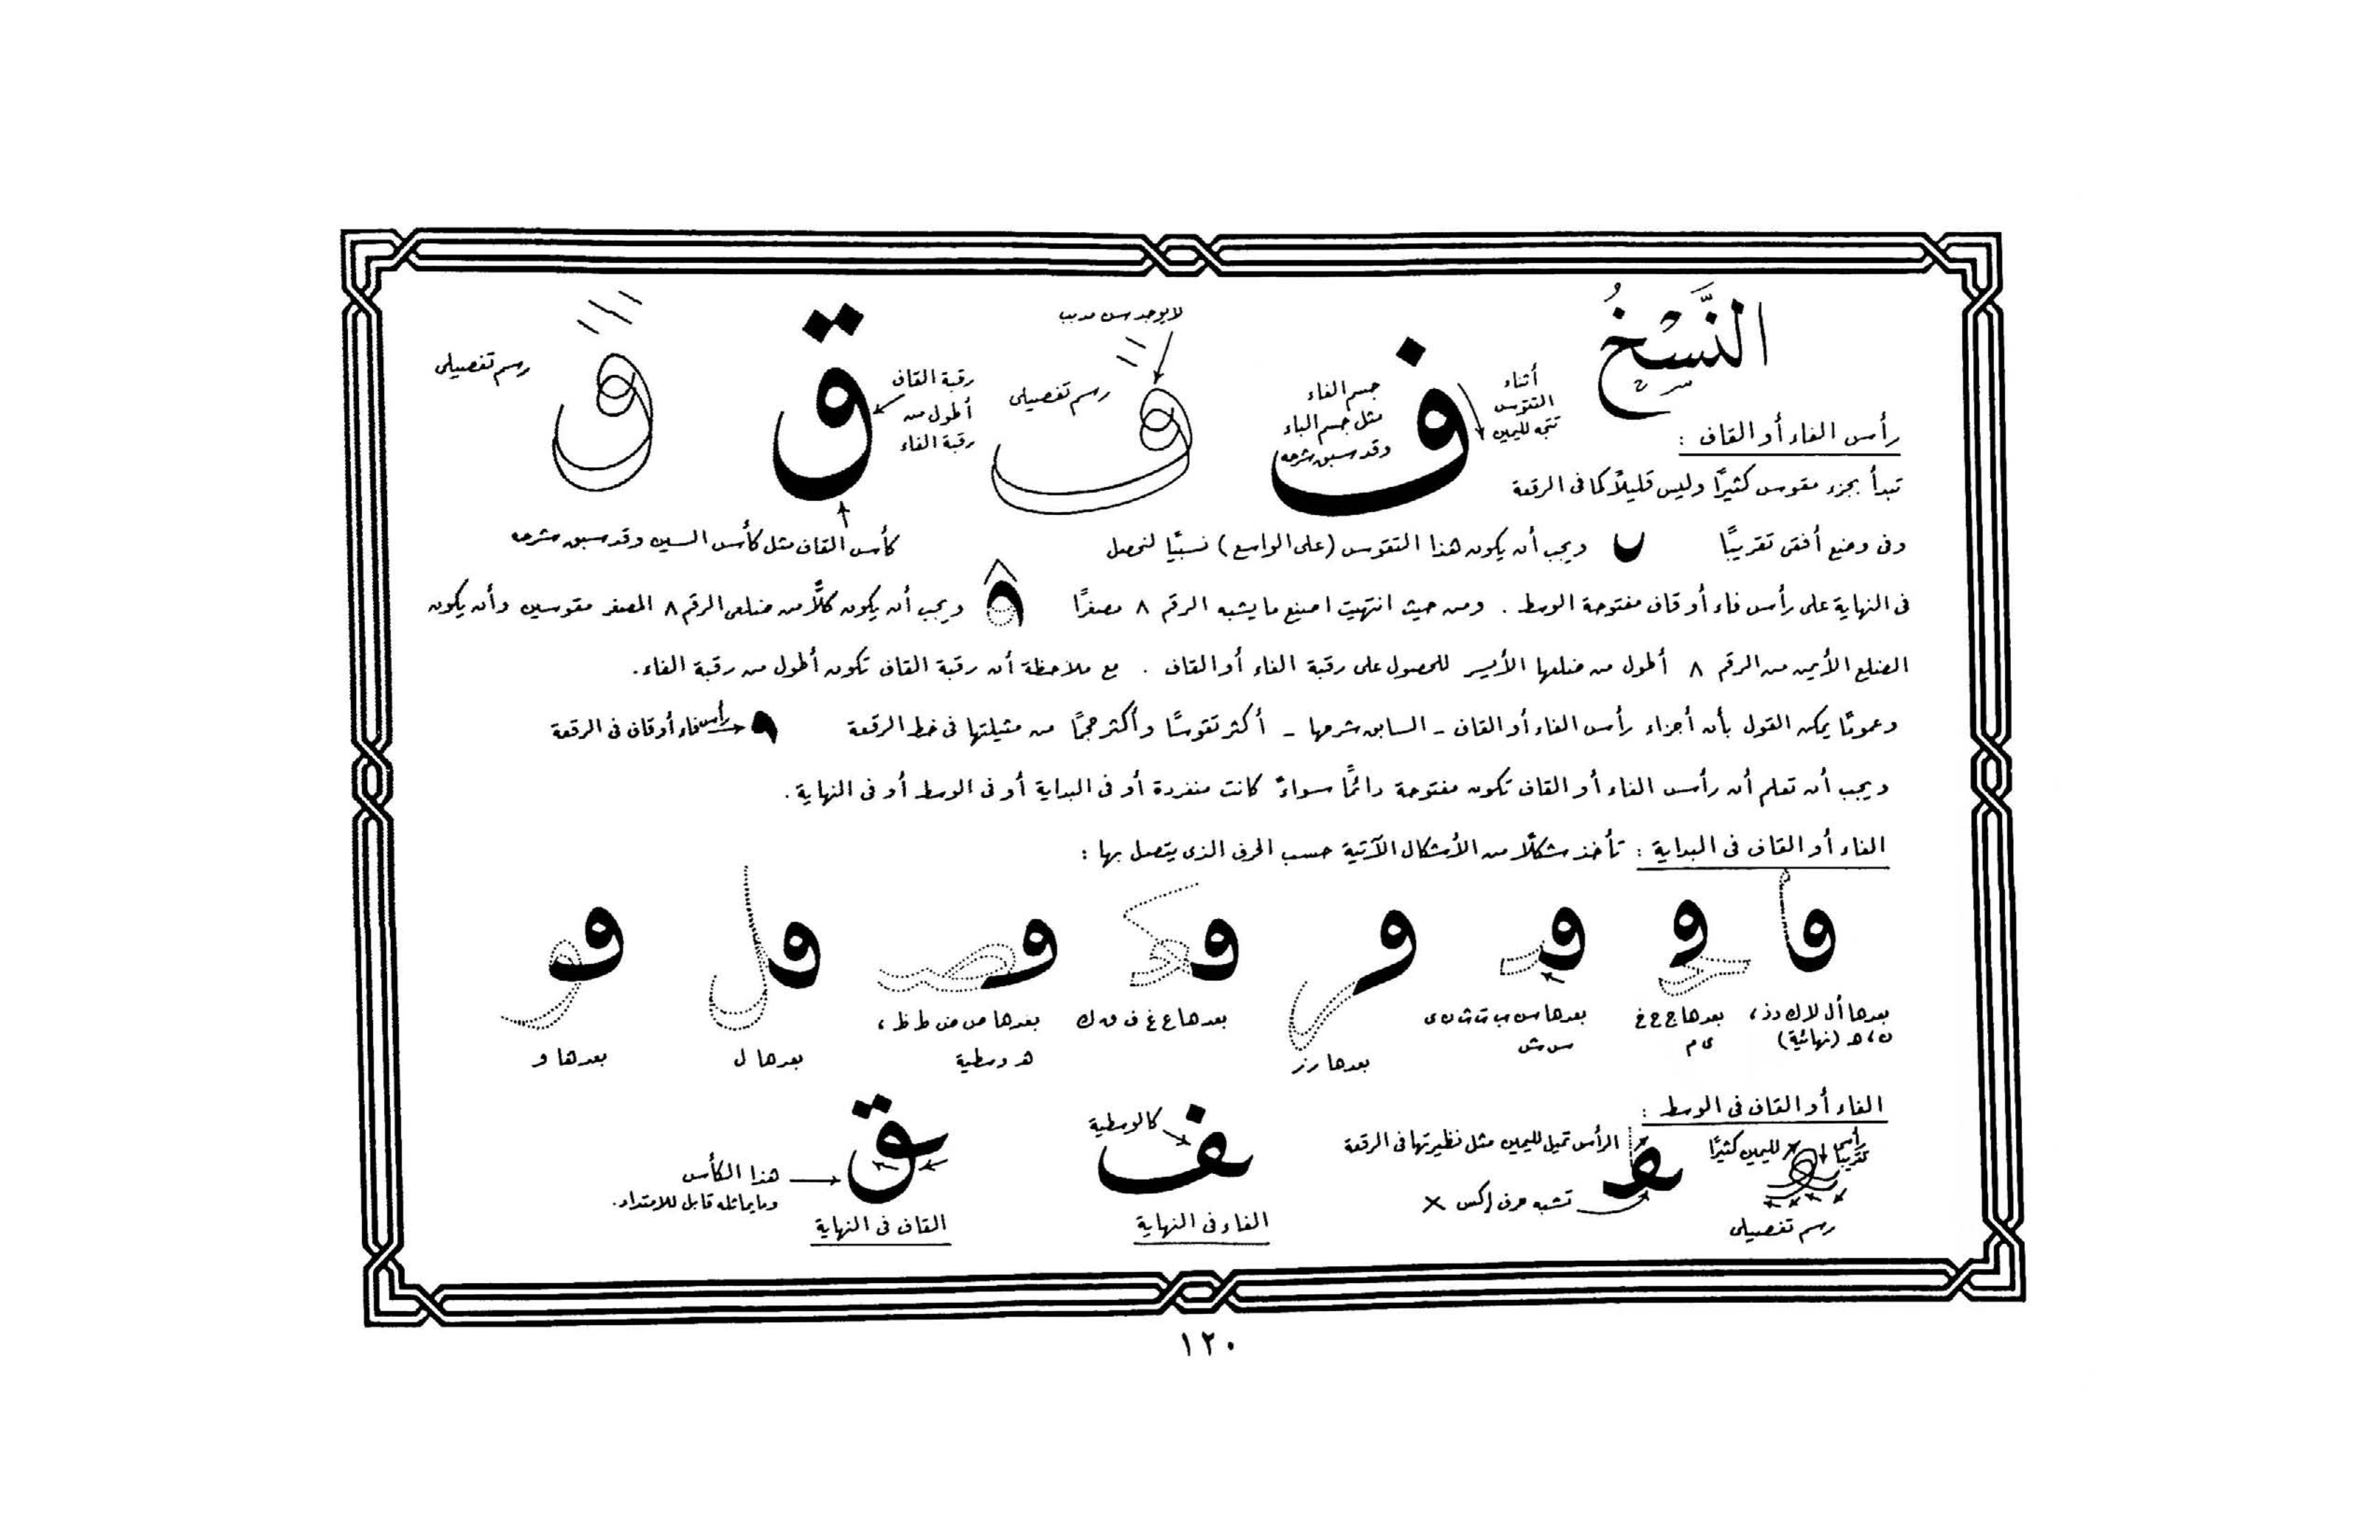 النَّسْخُ
رأس الفاء أو القاف :
تبدأ بجزء مقوس كثيرًا وليس قليلاً كما فى الرقعة
ف
أثناء
التقوس
تتجه لليمين
جسم الفاء
مثل جسم الباء
وقد سبق شرحه
لا يوجد سن مدبب
رسم تفصيلى
ق
رقبة القاف
أطول من
رقبة الفاء
رسم تفصيلى
كأس القاف مثل كأس السين وقد سبق شرحه
وفى وضع أفقى تقريبًا ويجب أن يكون هذا التقوس (على الواسع) نسبيًا لنحصل
فى النهاية على رأس فاء أو قاف مفتوحة الوسط . ومن حيث انتهيت اصنع ما يشبه الرقم ٨ مصغرًا ويجب أن يكون كلاًّ من ضلعى الرقم ٨ المصغر مقوسين وأن يكون
الضلع الأيمن من الرقم ٨ أطول من ضلعها الأيسر للحصول على رقبة الفاء أو القاف . مع ملاحظة أن رقبة القاف تكون أطول من رقبة الفاء.
وعمومًا يمكن القول بأن أجزاء رأس الفاء أو القاف - السابق شرحها - أكثر تقوسًا وأكثر حجمًا من مثيلتها فى خط الرقعة رأس فاء أو قاف فى الرقعة
ويجب أن تعلم أن رأس الفاء أو القاف تكون مفتوحة دائمًا سواءً كانت منفردة أو فى البداية أو فى الوسط أو فى النهاية .
الفاء أو القاف فى البداية : تأخذ شكلاً من الأشكال الآتية حسب الحرف الذى يتصل بها :
بعدها أ ل لا ك د ذ ،
ن ، ه (نهائية)
بعدها ج ح خ
ى م
بعدها س ب ت ث ن ى
س ش
بعدها ر ز
بعدها ع غ ف ق ك
بعدها ص ض ط ظ ،
ه وسطية
بعدها ل
بعدها و
الفاء أو القاف فى الوسط :
لليمين كثيرًا
رسم تفصيلى
الرأس تميل لليمين مثل نظيرتها فى الرقعة
تشبه حرف إكس X
كالوسطية
ف
الفاء فى النهاية
ق
هذا الكأس
وما يماثله قابل للامتداد.
القاف فى النهاية
١٢٠